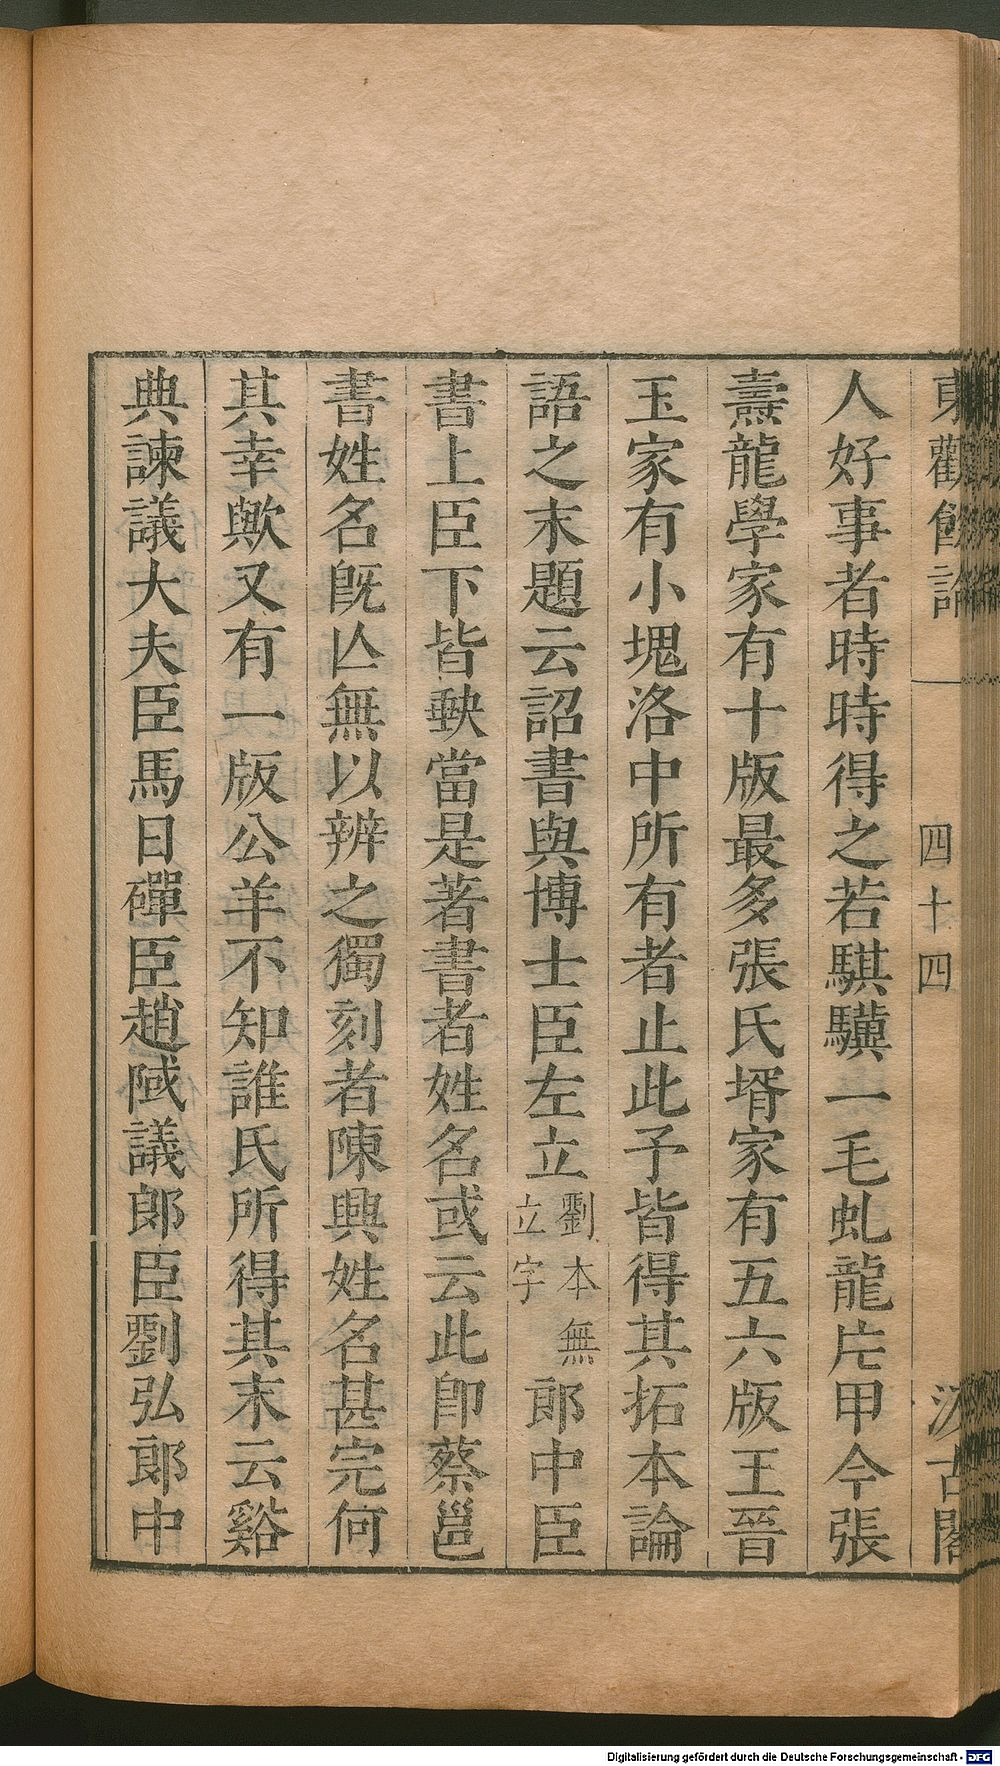 東觀餘論
四十四
汲古閣
人好事者時時得之若騏驥一毛虬龍片甲今張
燾龍學家有十版最多張氏壻家有五六版王晉
玉家有小塊洛中所有者止此予皆得其拓本論
語之末題云詔書與博士臣左立劉本無立字郎中臣
書上臣下皆缺當是著書者姓名或云此卽蔡邕
書姓名旣亾無以辨之獨刻者陳興姓名甚完何
其幸歟又有一版公羊不知誰氏所得其末云谿
典諫議大夫臣馬日磾臣趙𨺚議郎臣劉弘郎中
Digitalisierung gefördert durch die Deutsche Forschungsgemeinschaft - DFG